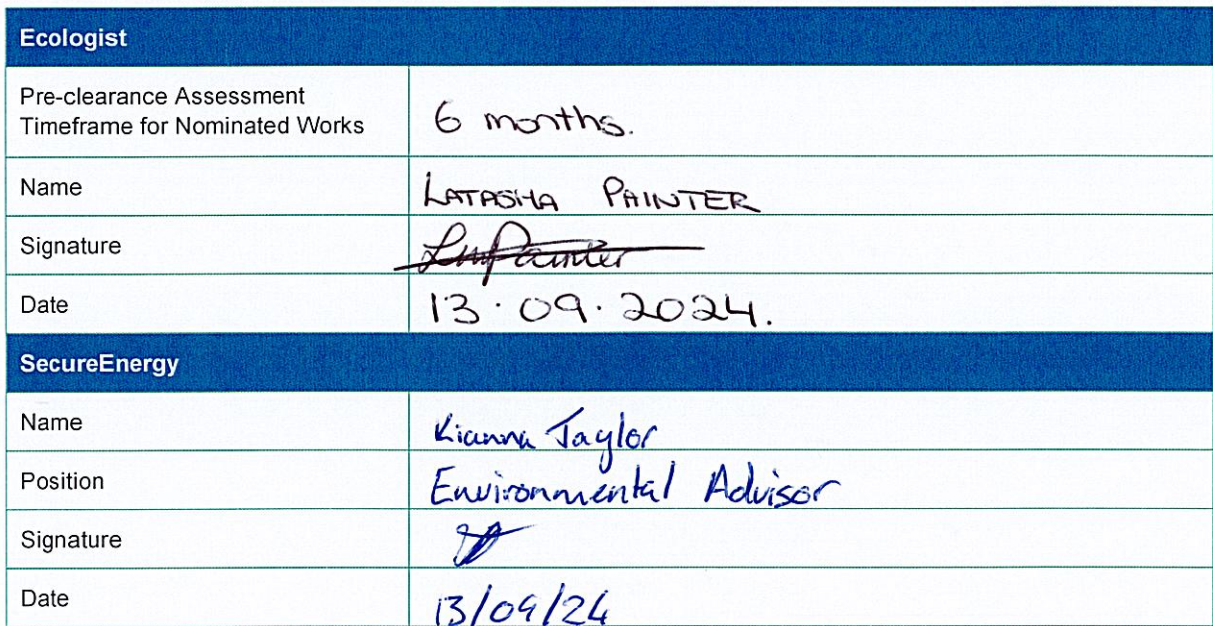 Ecologist
Pre-clearance Assessment
Timeframe for Nominated Works
6 months.
Name
LATASHA PAINTER
Signature
LmPainter
Date
13.09.2024.
SecureEnergy
Name
Kianna Taylor
Position
Environmental Advisor
Signature
Date
13/09/24